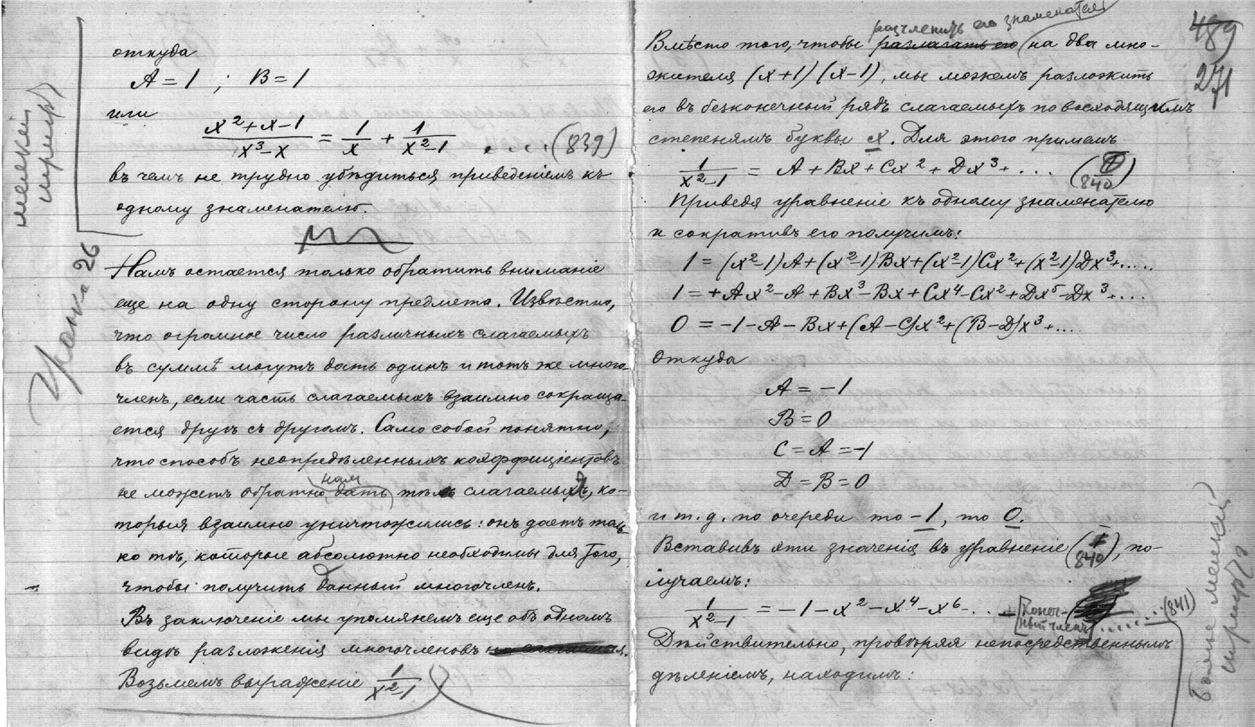 откуда
A = 1 ; B = 1
или
(x²+x-1)/(x³-x) = 1/x + 1/(x²-1) .... (839)
въ чемъ не трудно убѣдиться приведеніемъ къ
одному знаменателю.
мелкій
шрифтъ
Гранка 26
Намъ остается только обратить вниманіе
еще на одну сторону предмета. Извѣстно,
что огромное число различныхъ слагаемыхъ
въ суммѣ могутъ дать одинъ и тотъ же много-
членъ, если часть слагаемыхъ взаимно сокраща-
ется другъ съ другомъ. Само собой понятно,
что способъ неопредѣленныхъ коэффиціентовъ
не можетъ обратно намъ дать тѣхъ слагаемыхъ, ко-
торыя взаимно уничтожились: онъ даетъ толь-
ко тѣ, которые абсолютно необходимы для того,
чтобы получить данный многочленъ.
Въ заключеніе мы упомянемъ еще объ одномъ
видѣ разложенія многочленовъ
Возьмемъ выраженіе 1/(x²-1)
489
271
расчленить его знаменатель
Вмѣсто того, чтобы разлагать его на два мно-
жителя (x+1)(x-1), мы можемъ разложить
его въ безконечный рядъ слагаемыхъ по восходящимъ
степенямъ буквы x. Для этого примемъ
1/(x²-1) = A + Bx + Cx² + Dx³ + .... (840)
Приведя уравненіе къ одному знаменателю
и сокративъ его получимъ:
1 = (x²-1)A + (x²-1)Bx + (x²-1)Cx² + (x²-1)Dx³ + .....
1 = +Ax² - A + Bx³ - Bx + Cx⁴ - Cx² + Dx⁵ - Dx³ + ....
0 = -1 - A - Bx + (A - C)x² + (B - D)x³ + ...
Откуда
A = -1
B = 0
C = A = -1
D = B = 0
и т. д. по очереди то -1, то 0.
Вставивъ эти значенія въ уравненіе (840), по-
лучаемъ:
1/(x²-1) = -1 - x² - x⁴ - x⁶ - ... + [Конеч-ный членъ] ...... (841)
Дѣйствительно, провѣряя непосредственнымъ
дѣленіемъ, находимъ:
Болѣе мелкій
шрифтъ